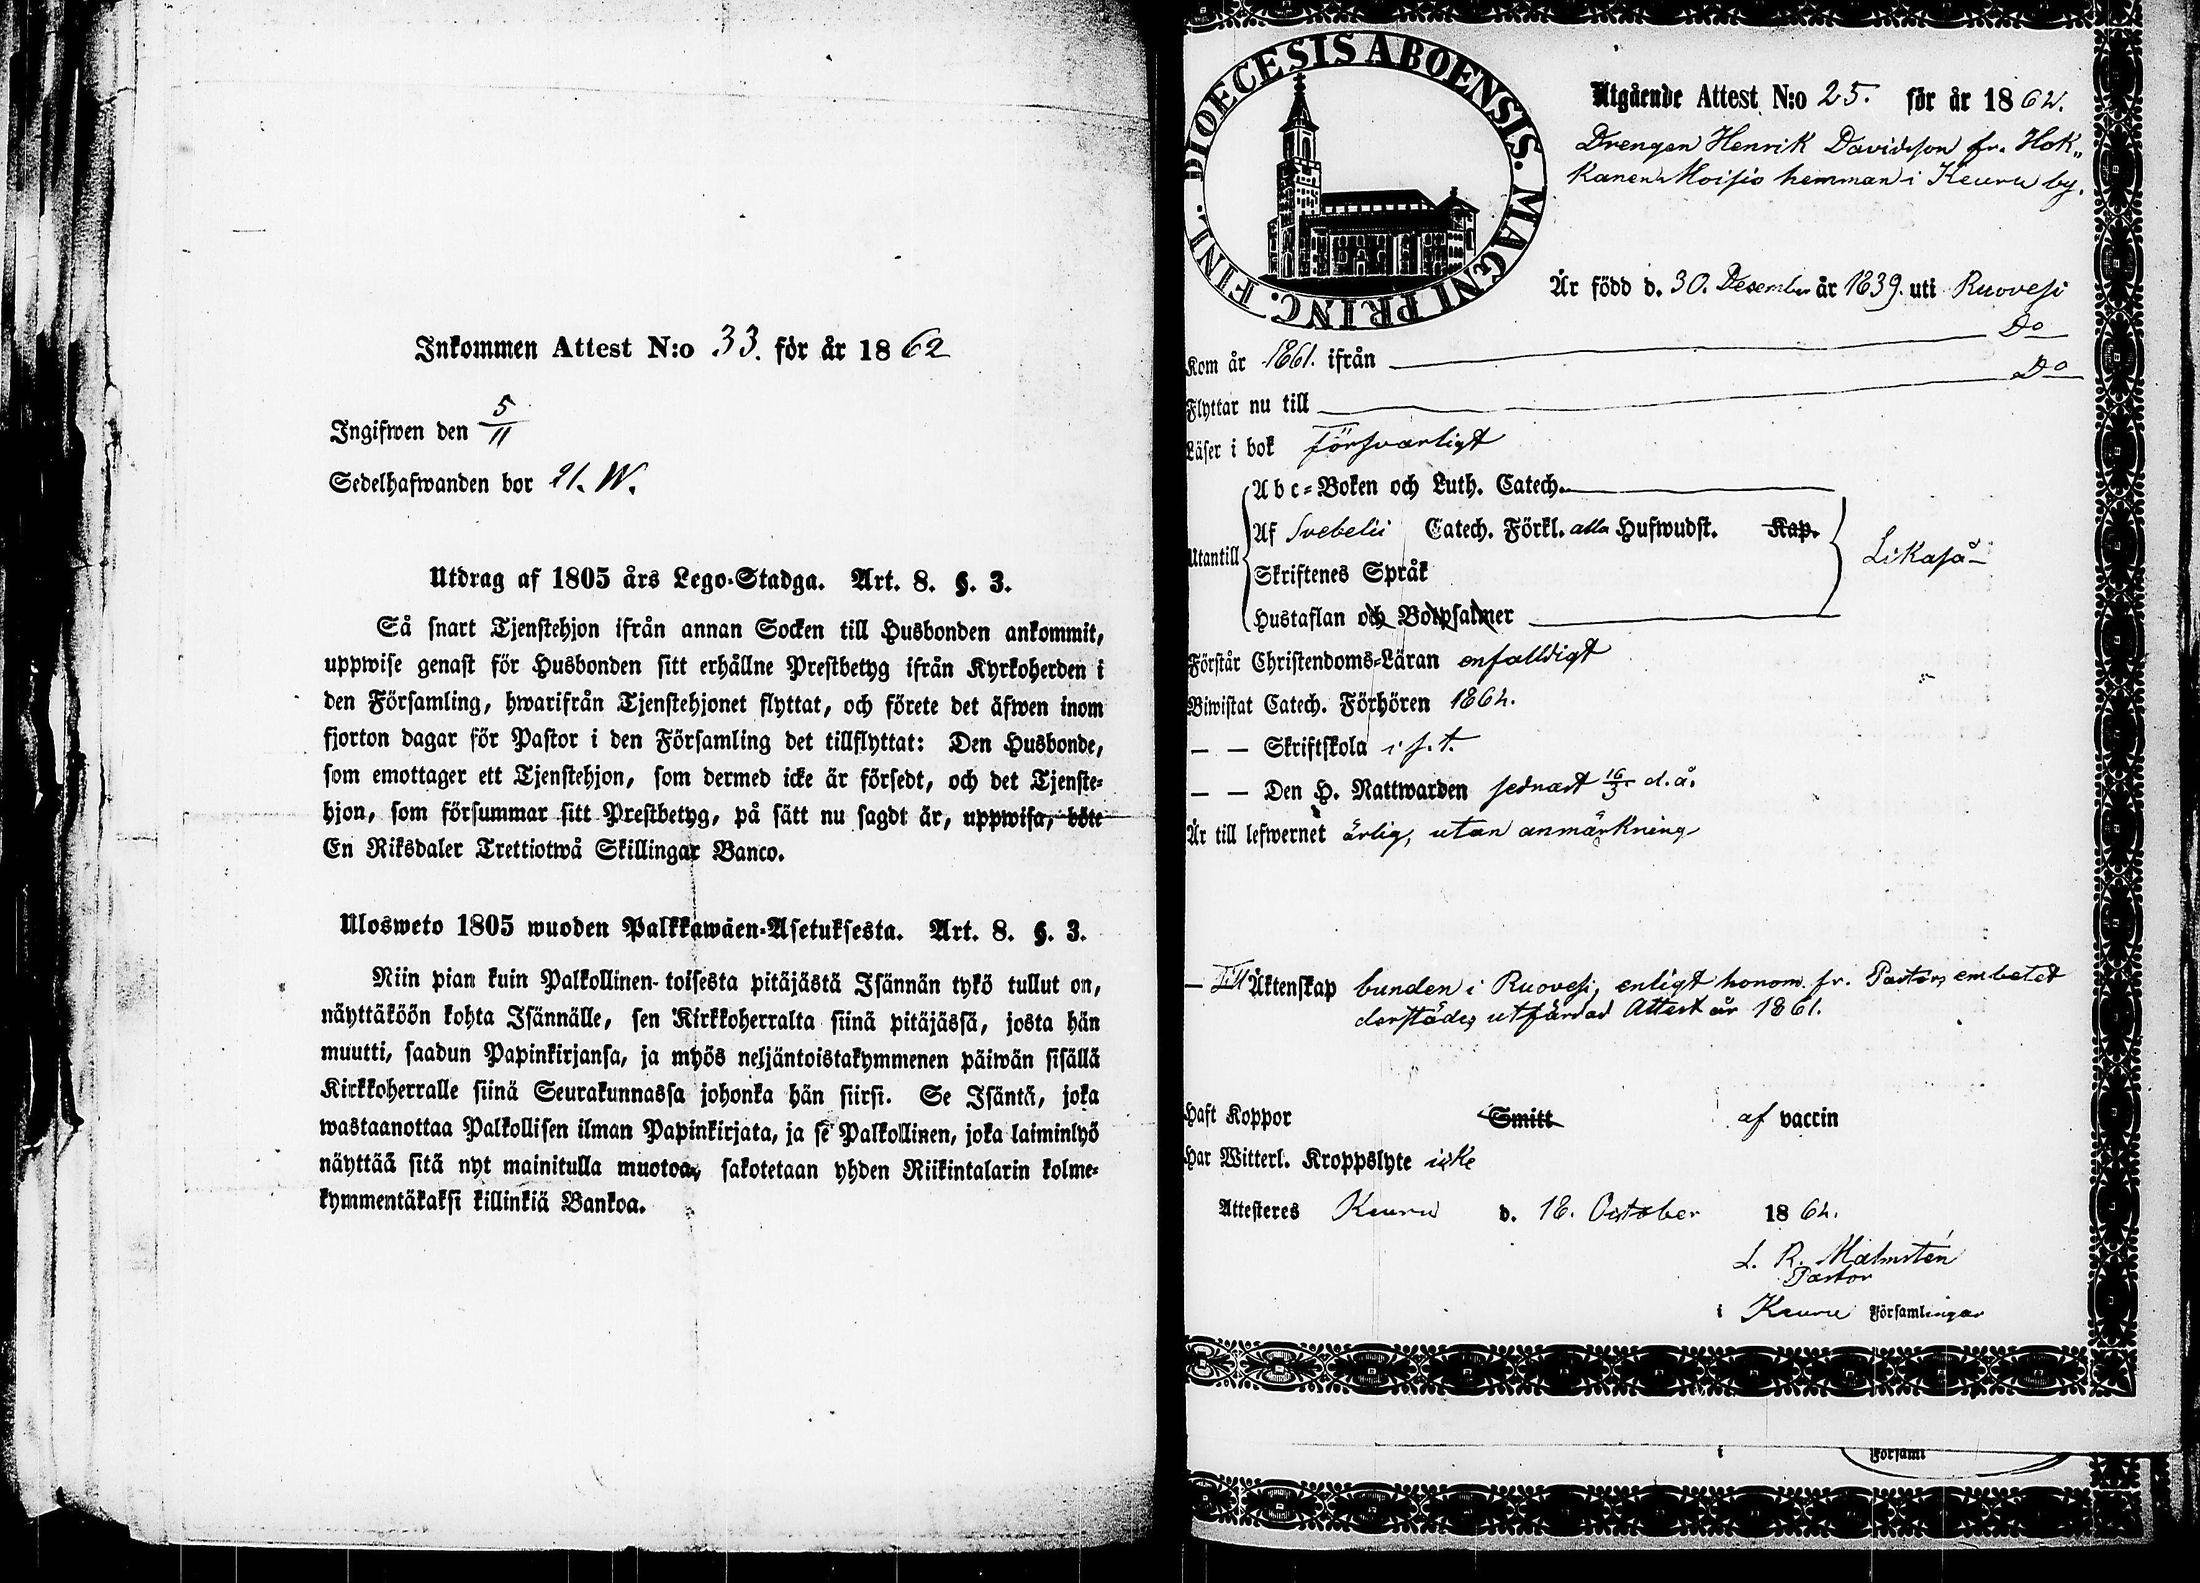 Inkommen Attest N:o 33. för år 1862
Ingifwen den 5/11
Sedelhafwanden bor 21. W.
Utdrag af 1805 års Lego-Stadga. Art. 8. §. 3.
Så snart Tjenstehjon ifrån annan Socken till Husbonden ankommit,
uppwise genast för Husbonden sitt erhållne Prestbetyg ifrån Kyrkoherden i
den Församling, hwarifrån Tjenstehjonet flyttat, och förete det äfwen inom
fjorton dagar för Pastor i den Församling det tillflyttat: Den Husbonde,
som emottager ett Tjenstehjon, som dermed icke är försedt, och det Tjenste-
hjon, som försummar sitt Prestbetyg, på sätt nu sagdt är, uppwisa, böte
En Riksdaler Trettiotwå Skillingar Banco.
Ulosweto 1805 wuoden Palkkawäen-Asetuksesta. Art. 8. §. 3.
Niin pian kuin Palkollinen toisesta pitäjästä Isännän tykö tullut on,
näyttäköön kohta Isännälle, sen Kirkkoherralta siinä pitäjässä, josta hän
muutti, saadun Papinkirjansa, ja myös neljäntoistakymmenen päiwän sisällä
Kirkkoherralle siinä Seurakunnassa johonka hän siirsi. Se Isäntä, joka
wastaanottaa Palkollisen ilman Papinkirjata, ja se Palkollinen, joka laiminlyö
näyttää sitä nyt mainitulla muotoa, sakotetaan yhden Riikintalarin kolme-
kymmentäkaksi killinkiä Bankoa.
DIOECESIS ABOENSIS. MAGNI PRINC. FINL.
Utgående Attest N:o 25. för år 1862.
Drengen Henrik Davidsson fr. Hok„
kanen Moisio hemman i Keuru by.
Är född d. 30. Desember år 1839. uti Ruovesi
Kom år 1861. ifrån Do
Flyttar nu till Do
Läser i bok försvarligt
Utantill
Abc-Boken och Luth. Catech.
Af Svebelii Catech. Förkl. alla Hufwudst. Kap.
Skriftenes Språk
Hustaflan och Botpsalmer
Likaså
Förstår Christendoms-Läran enfalldigt
Biwistat Catech. Förhören 1862.
— — Skriftskola i s. t.
— — Den H. Nattwarden sednast 16/3 d. å.
Är till lefwernet ärlig, utan anmärkning
— Till Äktenskap bunden i Ruovesi, enligt honom fr. Pastors embetet
derstädes utfärdad Attest år 1861.
Haft Koppor Smitt af vaccin
Har Witterl. Kroppslyte icke
Attesteres Keuru d. 18. October 1862.
L. R. Malmstén
Pastor
i Keuru Församlingar
i Församl